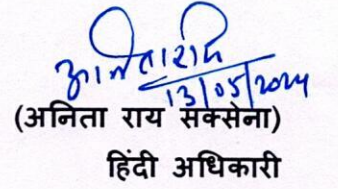 अनिता राय
13/05/2024
(अनिता राय सक्सेना)
हिंदी अधिकारी